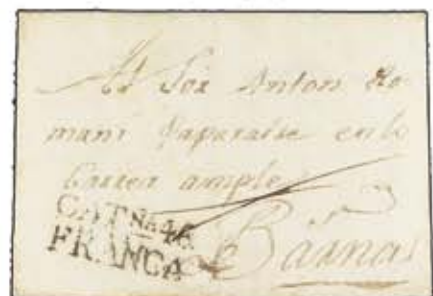 Al Sor Anton Ro
mani Paparaire en lo
Carrer ample
CATÑA 46
FRANCA
de Barna